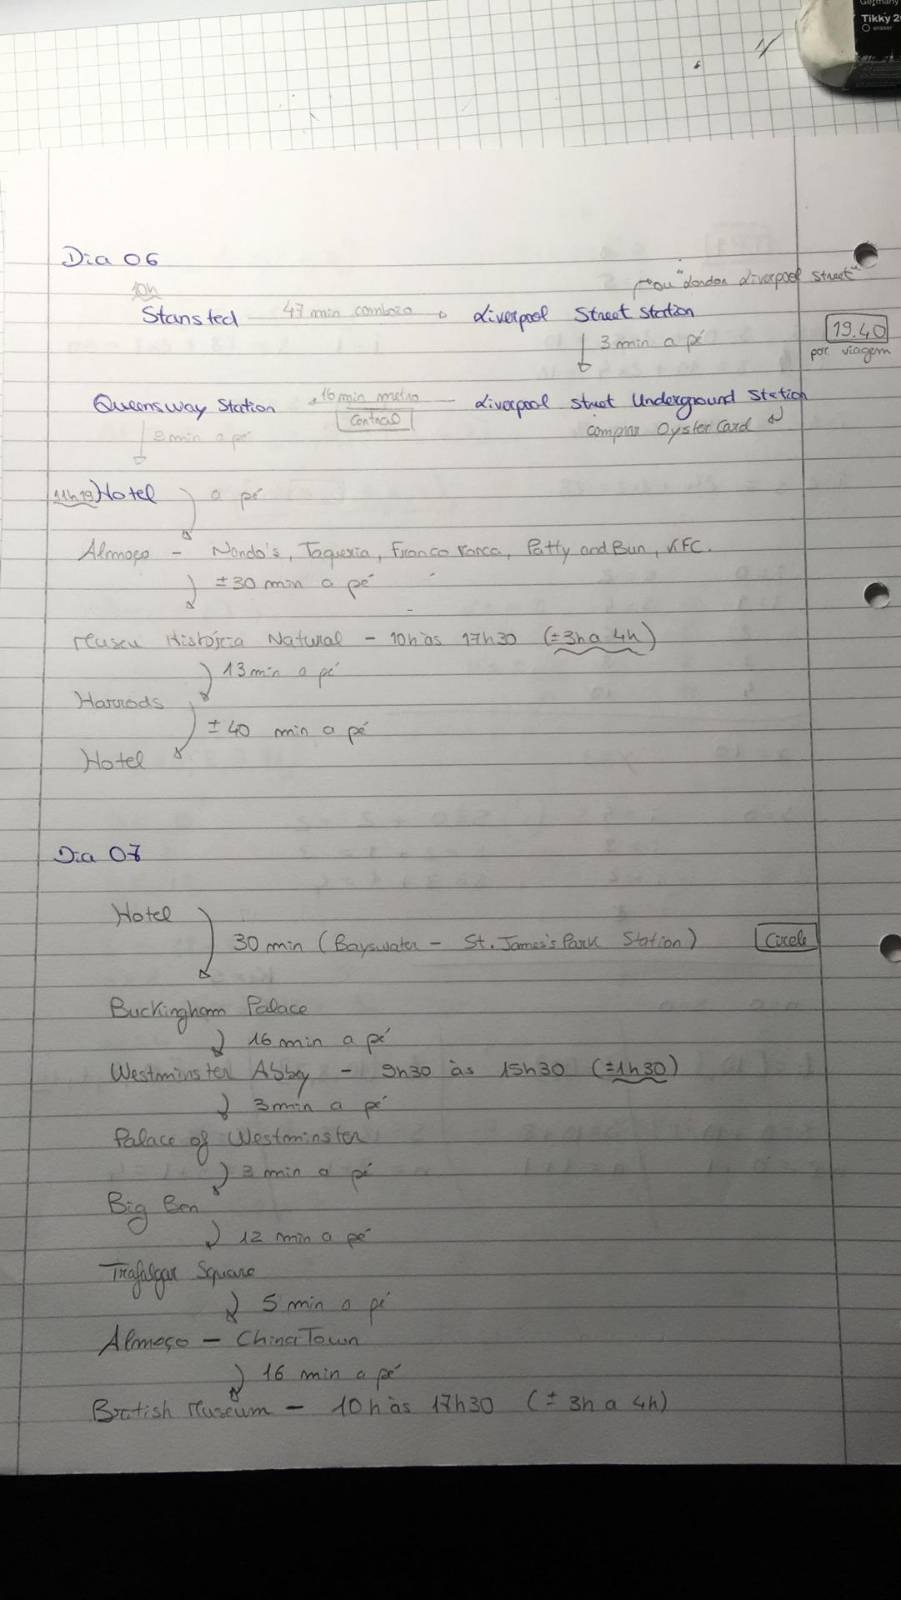 Germany
Tikky 2
eraser
Dia 06
10h
ou "London Liverpool Street"
Stansted 47 min comboio Liverpool Street Station
19.40
por viagem
3 min a pé
Queensway Station 16 min metro Liverpool Street Underground Station
Central
comprar Oyster Card
2 min a pé
11h19 Hotel
a pé
Almoço - Nando's, Taqueria, Franco Manca, Patty and Bun, KFC.
± 30 min a pé
Museu História Natural - 10h às 17h30 (± 3h a 4h)
13 min a pé
Harrods
± 40 min a pé
Hotel
Dia 07
Hotel
30 min (Bayswater - St. James's Park Station) Circle
Buckingham Palace
16 min a pé
Westminster Abbey - 9h30 às 15h30 (±1h30)
3 min a pé
Palace of Westminster
3 min a pé
Big Ben
12 min a pé
Trafalgar Square
5 min a pé
Almoço - ChinaTown
16 min a pé
British Museum - 10h às 17h30 (± 3h a 4h)